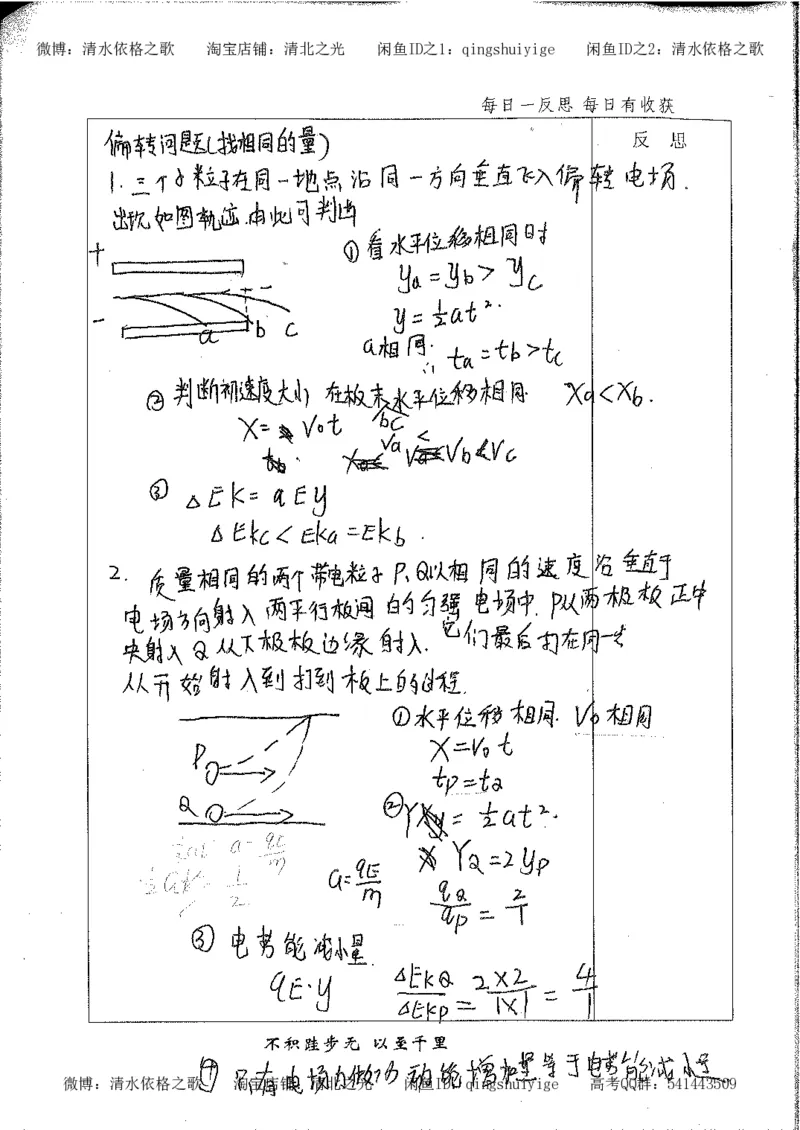 微博：清水依格之歌 淘宝店铺：清北之光 闲鱼ID之1：qingshuiyige 闲鱼ID之2：清水依格之歌
每日一反思 每日有收获
反 思
偏转问题(找相同的量)
1. 三个α粒子在同一地点沿同一方向垂直飞入偏转电场.
出现如图轨迹.由此可判断
①看水平位移相同时
+
ya=yb>yc
y=½at².
- a b c
a相同. ∴ta=tb>tc
②判断初速度大小 在板末水平位移相同. Xa<Xb.
bc
X=V0t
Va<Vb<Vc
③ ΔEK=qEy
ΔEkc<Eka=Ekb.
2. 质量相同的两个带电粒子P,Q以相同的速度沿垂直于
电场方向射入两平行板间的匀强电场中.P从两极板正中
央射入Q从下极板边缘射入.它们最后打在同一点
从开始射入到打到板上的过程.
①水平位移相同. V0相同
P X=V0t
tp=tQ
Q ② Y=½at².
YQ=2yp
a=qE/m
qQ/qp=2/1
③电势能减小量.
qE·y ΔEkQ/ΔEkp=2×2/1×1=4/1
不积跬步无 以至千里
④只有电场力做功动能增加量等于电势能减小量
微博：清水依格之歌 淘宝店铺：清北之光 闲鱼ID：qingshuiyige 高考QQ群：541443509